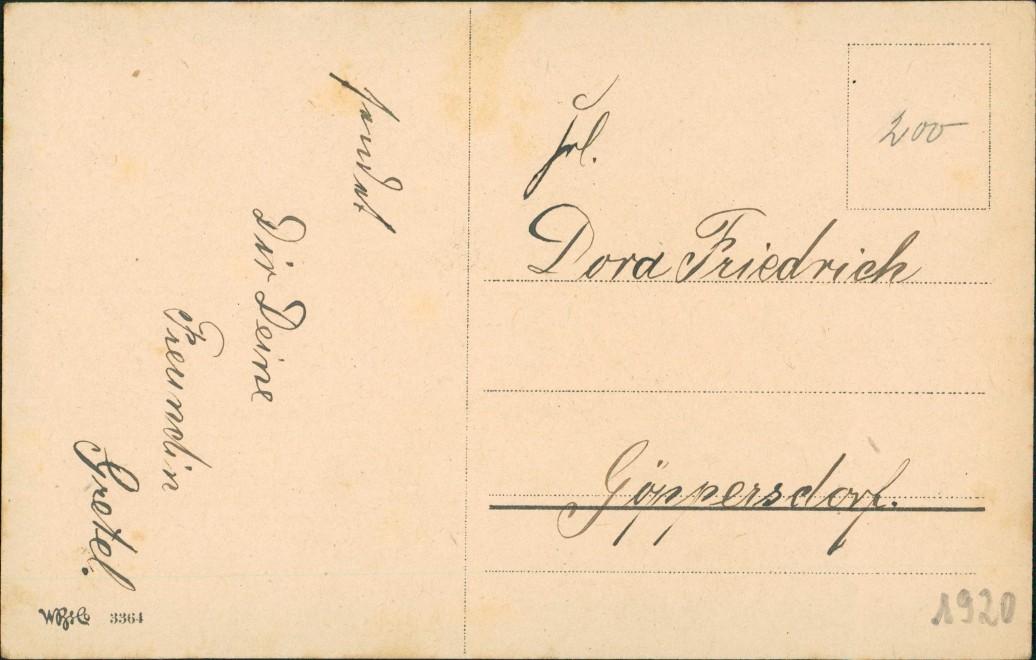 sendet
Dir Deine
Freundin
Gretel.
Frl.
Dora Friedrich
Göppersdorf.
200
1920
3364